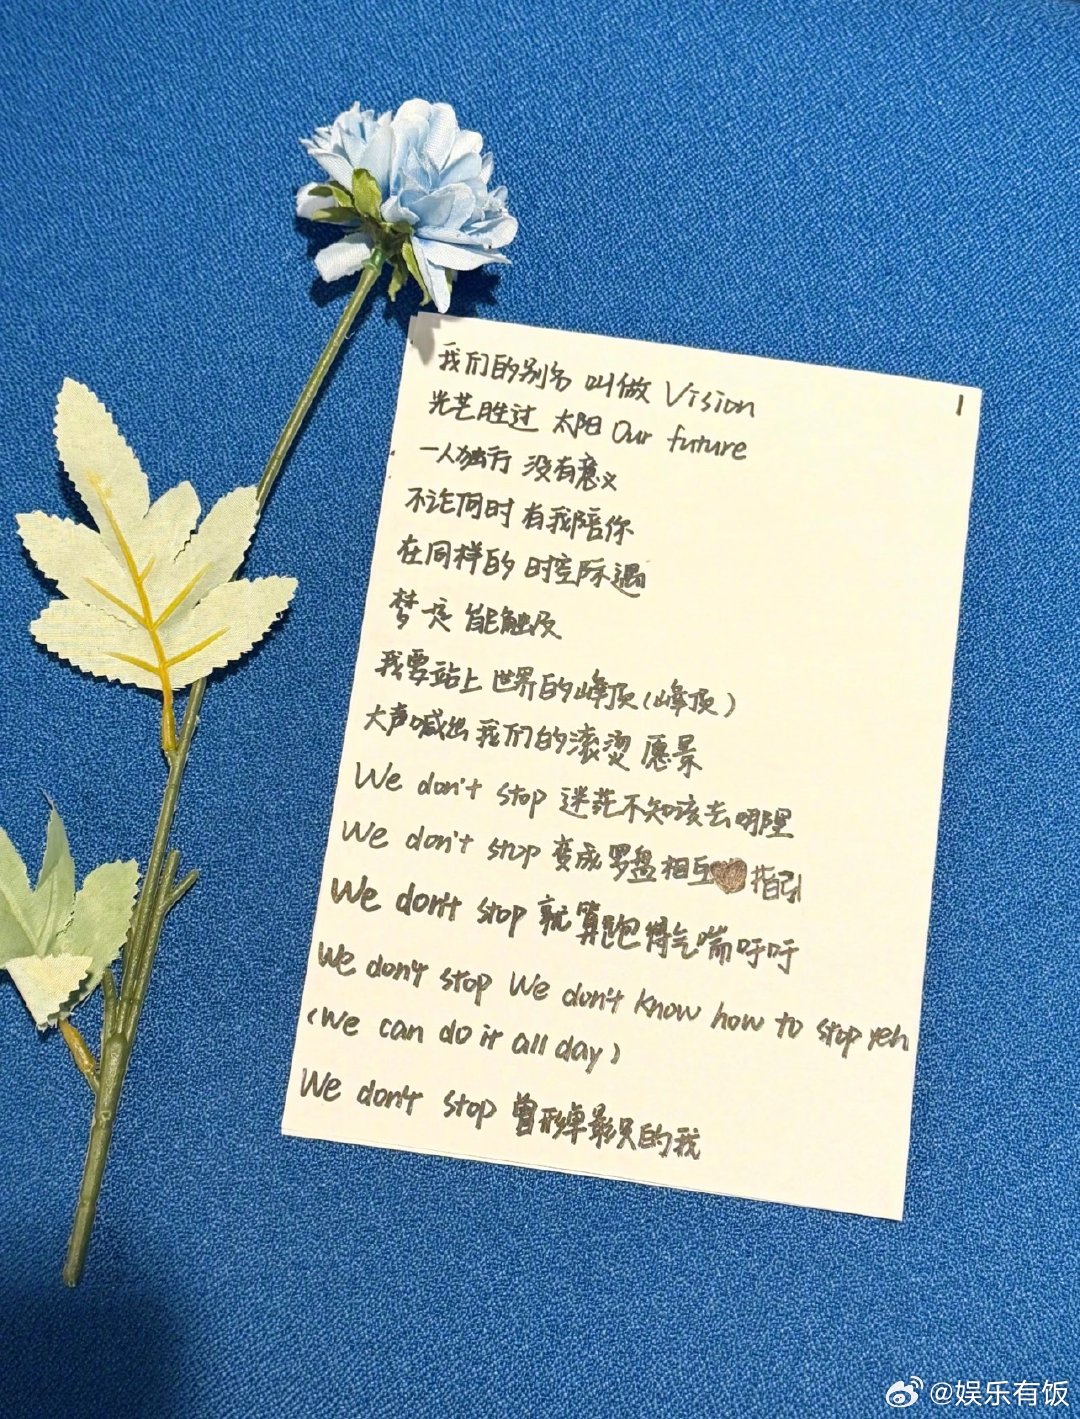 1
我们的别名 叫做 Vision
光芒胜过 太阳 Our future
一人独行 没有意义
不论何时 有我陪你
在同样的 时空际遇
梦一定 能触及
我要站上 世界的峰顶(峰顶)
大声喊出 我们的滚烫 愿景
We don't stop 迷茫不知该去哪里
We don't stop 变成罗盘相互 指引
We don't stop 就算跑得气喘吁吁
We don't stop We don't know how to stop yeh
(We can do it all day)
We don't stop 曾形单影只的我
@娱乐有饭